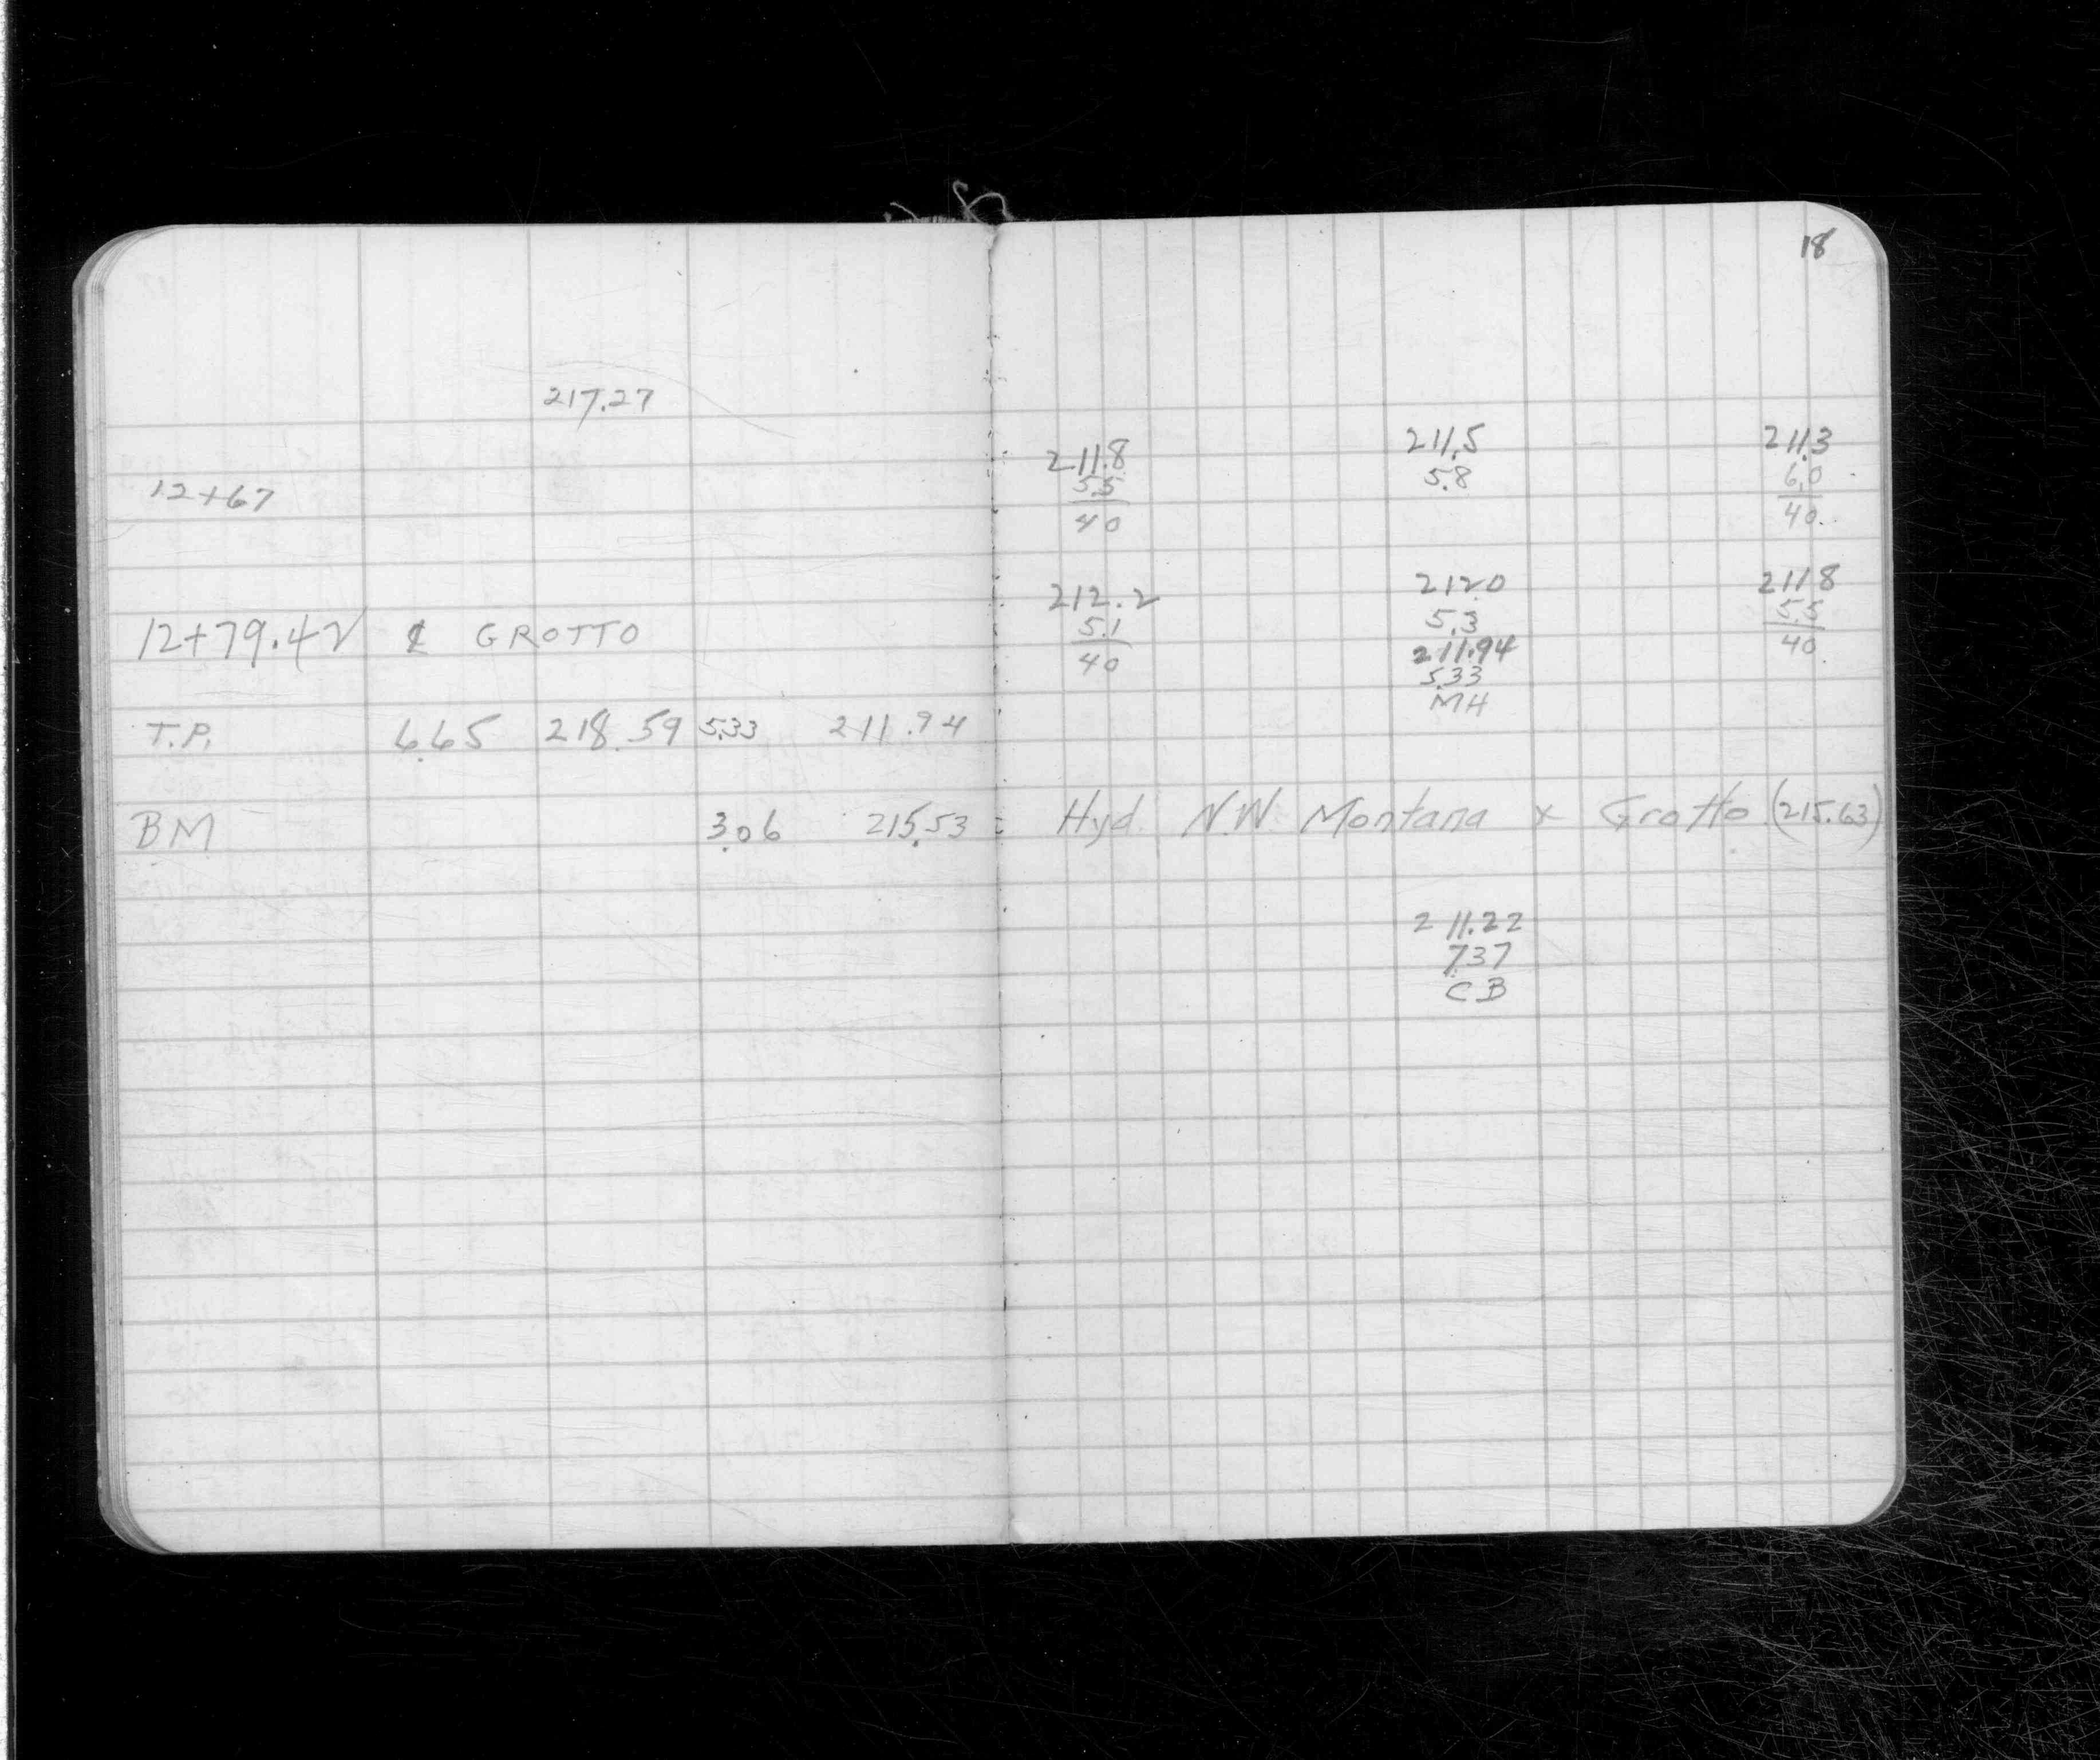 18
217.27
211.8 211.5 211.3
12+67 5.5 5.8 6.0
40 40
212.2 212.0 211.8
12+79.42 ℄ GROTTO 5.1 5.3 5.5
40 211.94 40
5.33
MH
T.P. 6.65 218.59 5.33 211.94
BM 3.06 215.53 = Hyd. N.W. Montana x Grotto (215.63)
211.22
7.37
CB